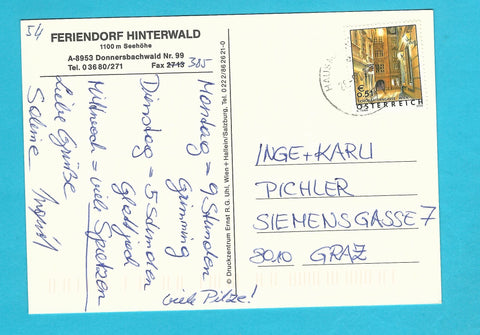 54
FERIENDORF HINTERWALD
1100 m Seehöhe
A-8953 Donnersbachwald Nr. 99
Tel. 0 36 80/271 Fax 27 13 385
Montag = 9 Stunden
Grimming
Dienstag = 5 Stunden
Gletsch
Mittwoch = viele Spritzen
viele Pilze!
Liebe Grüße
Sabine Ingrid
© Druckzentrum Ernst R.G. Uhl, Wien + Hallein/Salzburg, Tel. 0 222/8 62 62 1-0
HAUS
€ 0,51
ÖSTERREICH
INGE + KARLI
PICHLER
SIEMENSGASSE 7
8010 GRAZ